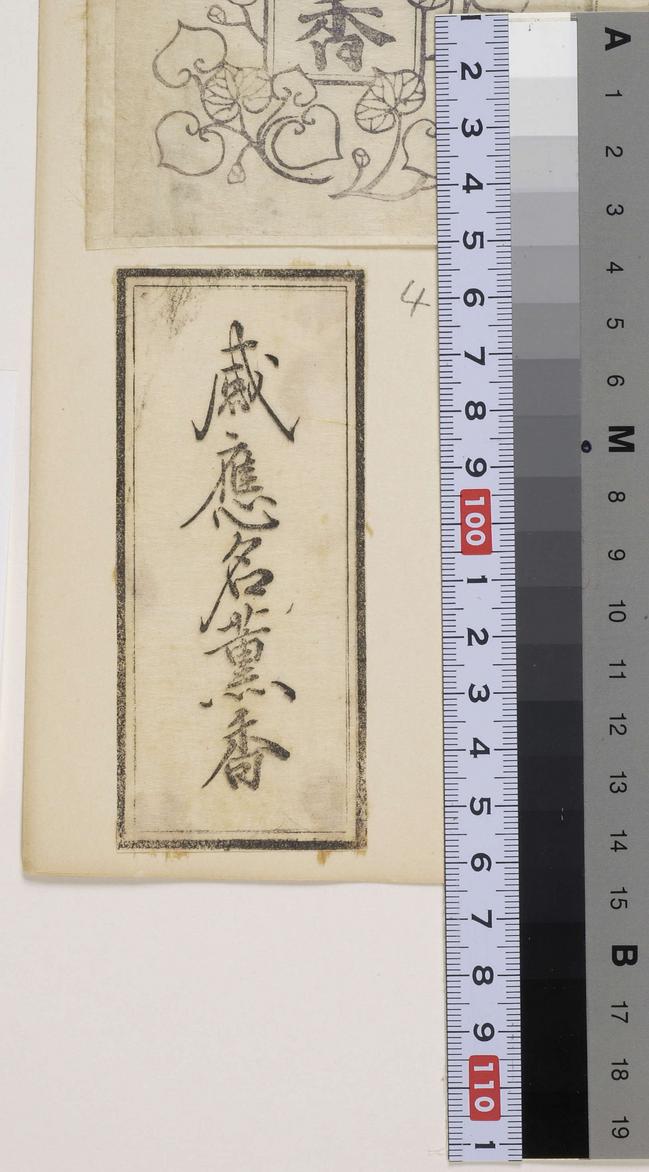 香
4
感應名薫香
2
3
4
5
6
7
8
9
100
1
2
3
4
5
6
7
8
9
110
1
A
1
2
3
4
5
6
M
8
9
10
11
12
13
14
15
B
17
18
19